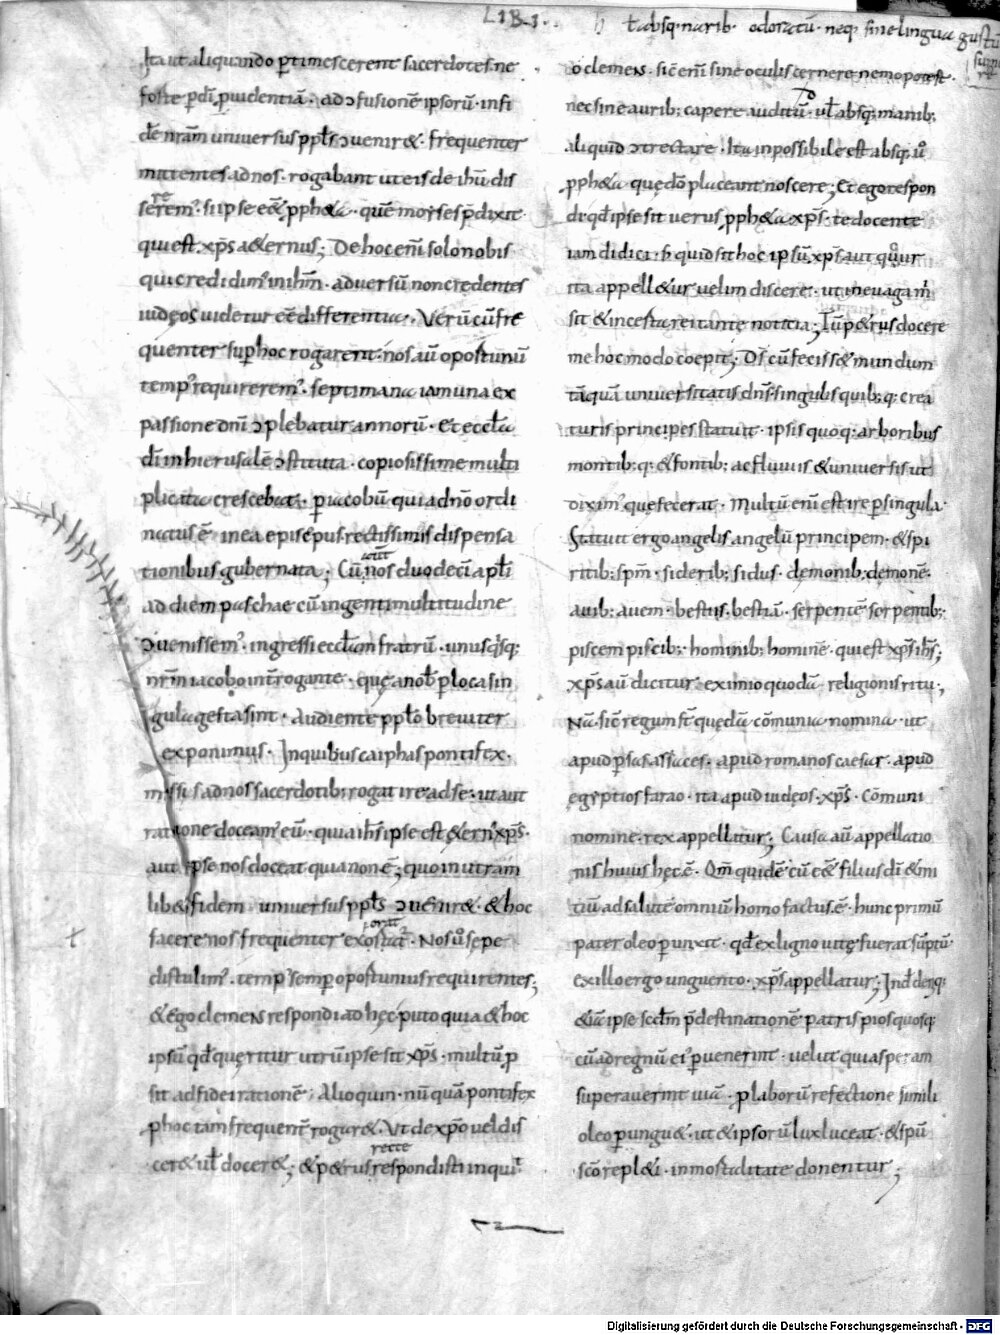 LIB. I.
ł absq. narib. odoratū. neq. sine lingua gustū
sume
re
Ita ut aliquando ꝑtimescerent sacerdotes ne
forte ꝑ dī ꝓuidentiā. ad ↄfusionē ipsorū. in fi
dē nr̄am uniuersus ppl̄s ↄuenir&. frequenter
mittentes ad nos. rogabant ut eis de ih̄u dis
serem᾿. si ipse eēt ꝓph&a. quē moyses p̄dixit
qui est. xp̄s a&ernus; De hoc enī solo nobis
qui credidim᾿ in ih̄m. aduersū non credentes
iudęos uidetur eē differentia. Verū cū fre
quenter suꝑ hoc rogarent. nos aū oportunū
temp᾿ requirerem᾿. septimana iam una ex
passione dnī ↄplebatur annorū. Et eccl̄a
dī in hierusalē ↄstituta. copiosissime multi
plicata crescebat. ꝑ iacobū qui a dn̄o ordi
natus ē in ea episcpus rectissimis dispensa
tionibus gubernata; Cū nos duodecī apl̄i
ad diem paschae cū ingenti multitudine
ↄuenissem᾿. ingressi eccl̄am fratrū. unusqsq;
nr̄m iacobo int̄rogante. quę a nob̄ ꝑ loca sin
gula gesta sint. Audiente ppl̄o breuiter
exponimus. In quibus caiphas pontifex.
missis ad nos sacerdotib; rogat ire ad se. ut aut
ratione doceam᾿ eū. quia ih̄s ipse est &ern᾿ xp̄s.
aut ipse nos doceat quia non ē; quo in utram
lib& fidem uniuersus ppl̄s ↄuenir&. & hoc
facere nos frequenter Nos ů sępe
distulim᾿. temp᾿ semꝑ oportunius requirentes;
& ego clemens respondi ad hęc. puto quia & hoc
ipsū qđ quęritur utrū ipse sit xp̄s. multū ꝓ
sit ad fidei rationē; Alioquin. nūquā pontifex
ꝓ hoc tam frequent̄ rogar&. Ut de xp̄o uel dis
cer& ul̄ docer&; & p&rus recte respondisti inquit
o clemens. sic enī sine oculis cernere nemo potest.
nec sine aurib; capere auditū. ul̄ absq; manib;
aliquid ↄtrectare. Ita inpossibile est absq; ůo
ꝓph&a quę dō placeant noscere; Et ego respon
di. qđ ipse sit uerus ꝓph&a xp̄s. te docente
iam didici. s; quid sit hoc ipsū xp̄s aut qur
ita appell&ur uelim discere. ut ne uaga m̄
sit & incerta rei tantę noticia; Tū p&rus docere
me hoc modo coepit; Ds̄ cū feciss& mundum
tāquā uniuersitatis dn̄s. singulis quib;q; crea
turis principes statuit. ipsis quoq; arboribus
montib;q; & fontib; ac fluuiis & uniuersis ut
dixim᾿ que fecerat. Multū enī est ire ꝑ singula.
Statuit ergo angelis angelū principem. & spi
ritib; spm̄. siderib; sidus. dęmonib; demonē.
auib; auem. bestiis. bestiā. serpentē serpentib;
piscem piscib;. hominib; hominē. qui est xp̄s ih̄s;
Xp̄s aū dicitur eximio quodā religionis ritu;
Nā sic̄ regum st̄ quędā cōmunia nomina. ut
apud ꝑsas assaces. apud romanos caesar. apud
egyptios farao. ita apud iudęos. xp̄s. Cōmuni
nomine. rex appellatur; Causa aū appellatio
nis huius hęc ē. Qm̄ quidē cū eēt filius dī & ini
tiū ad salutē omniū homo factus ē. hunc primū
pater oleo ꝑunxit. qđ ex ligno uitę fuerat sūptū
ex illo ergo unguento. xp̄s appellatur; Ind̄ deniq;
& iā ipse scd̄m p̄destinationē patris pios quosq;
cū ad regnū ei᾿ ꝑuenerint. uelut qui asperam
superauerint uiā. ꝓ laborū refectione simili
oleo ꝑungu&. ut & ipsorū lux luceat. & spū
sc̄o repl&i. inmortalitate donentur;
Digitalisierung gefördert durch die Deutsche Forschungsgemeinschaft - DFG